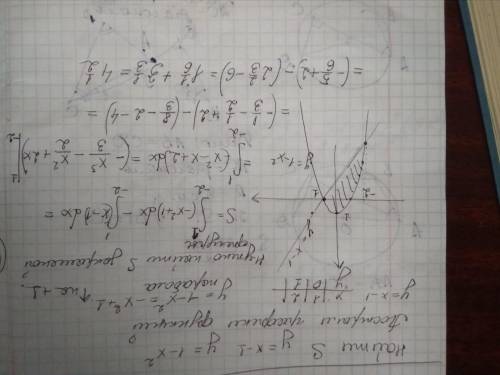 Найти S y = x-1 y = 1-x²
Построим графики функций
y = x-1 y = 1-x² = -x²+1 ↑ на +1
x | 1 | 2
y | 0 | 1
парабола
Нужно найти S закрашенной
y = x-1
y = 1-x²
S = ∫₋₂¹ (-x²+1)dx - ∫₋₂¹ (x-1)dx =
= ∫₋₂¹ (-x²-x+2)dx = (-x³/3 - x²/2 + 2x)|₋₂¹
= (-1/3 - 1/2 + 2) - (8/3 - 2 - 4) =
= (-5/6 + 2) - (2 2/3 - 6) = 1 1/6 + 3 1/3 = 4 1/2